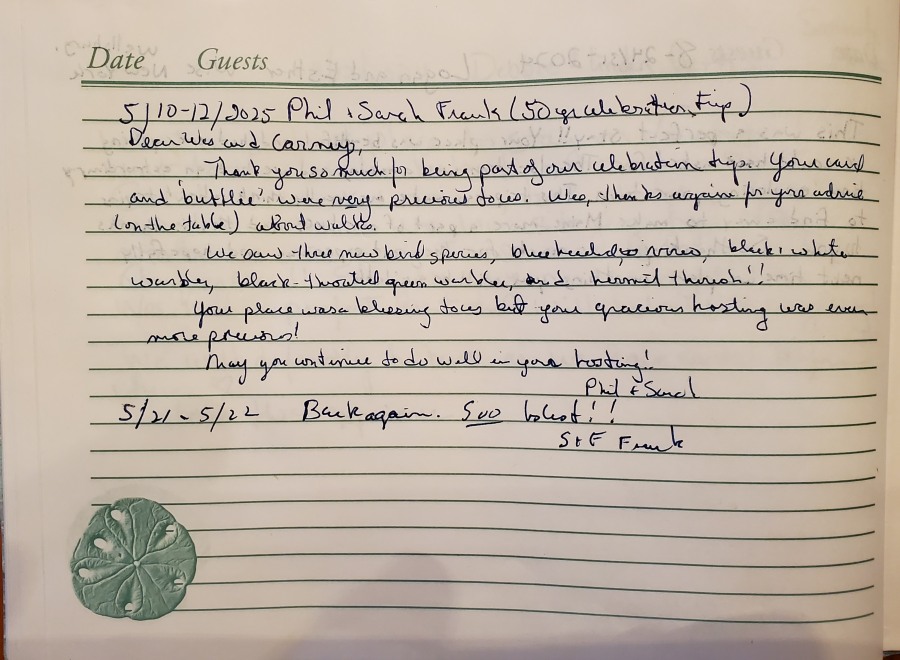 Date Guests
5/10-12/2025 Phil + Sarah Frank (50 yr celebration trip)
Dear Wes and
Thank you so much for being part of our celebration trip. Your card
and were very precious to us. Wes, thanks again for your advice
(on the table) about walks.
We saw three new bird species, blue headed vireo, black + white
warbler, black-throated green warbler, and hermit thrush!!
Your place was a blessing to us but your gracious hosting was even
more precious!
May you continue to do well in your hosting!
Phil + Sarah
5/21 - 5/22 Back again. Soo !!
Frank